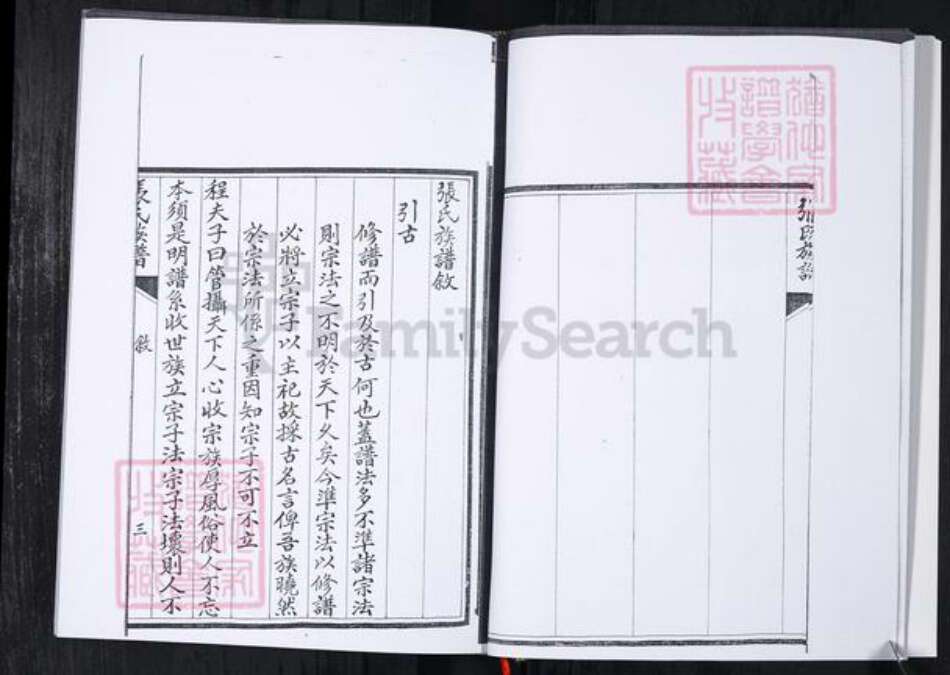 張氏族譜敘
引古
修譜而引及於古何也蓋譜法多不準諸宗法
則宗法之不明於天下久矣今準宗法以修譜
必將立宗子以主祀故採古名言俾吾族曉然
於宗法所係之重因知宗子不可不立
程夫子曰管攝天下人心收宗族厚風俗使人不忘
本須是明譜系收世族立宗子法宗子法壞則人不
張氏族譜
敘
三
FamilySearch